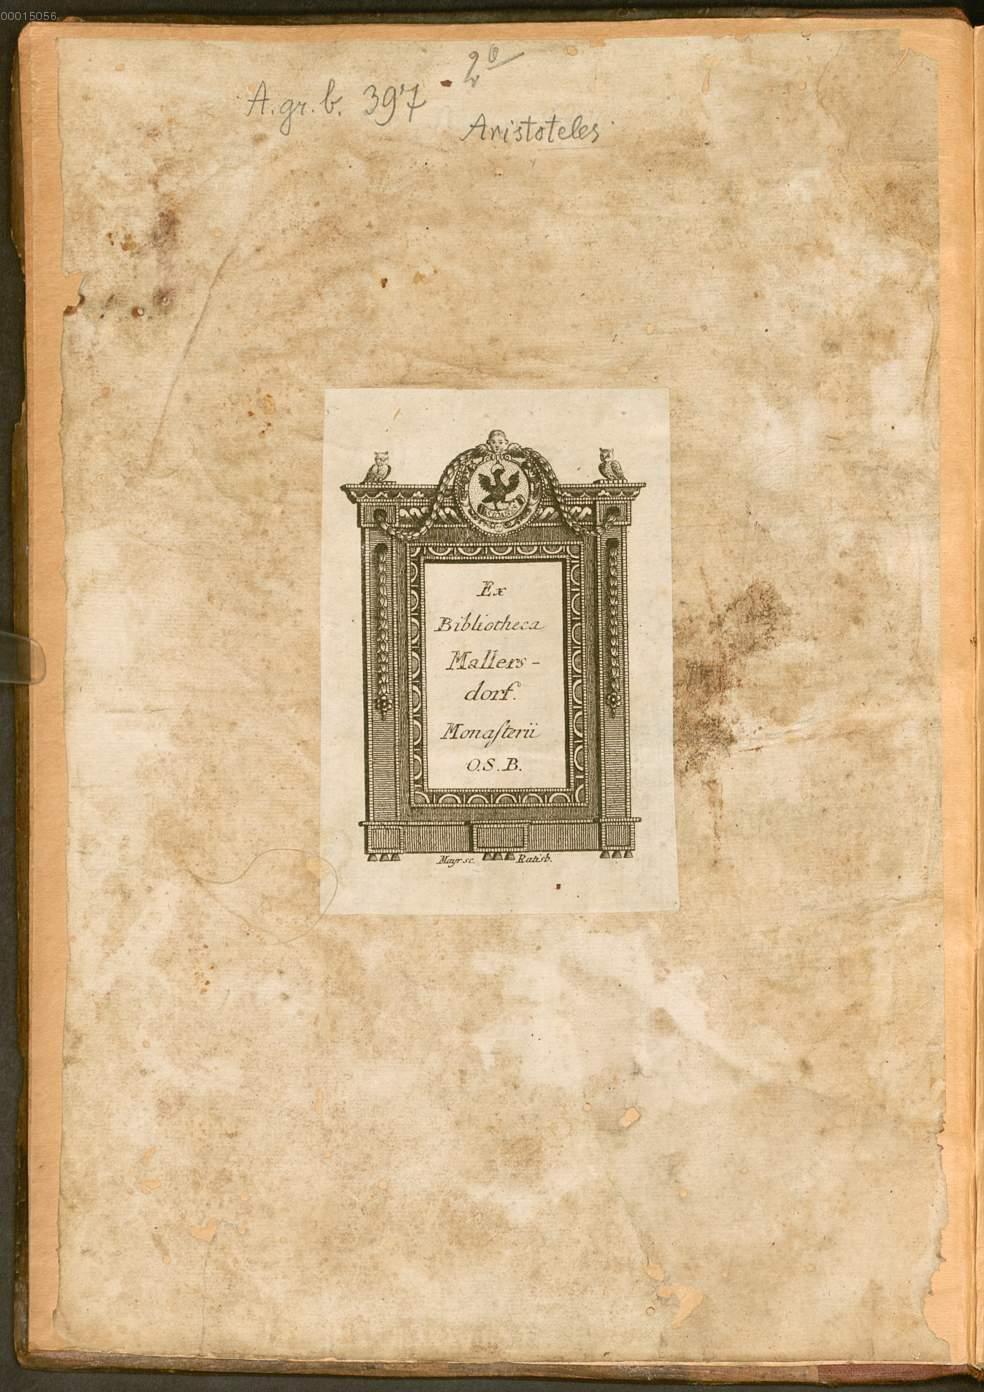 00015056
2°
A.gr.b. 397
Aristoteles
Ex
Bibliotheca
Mallers-
dorf.
Monaſterii
O.S.B.
Mayr sc. Ratisb.